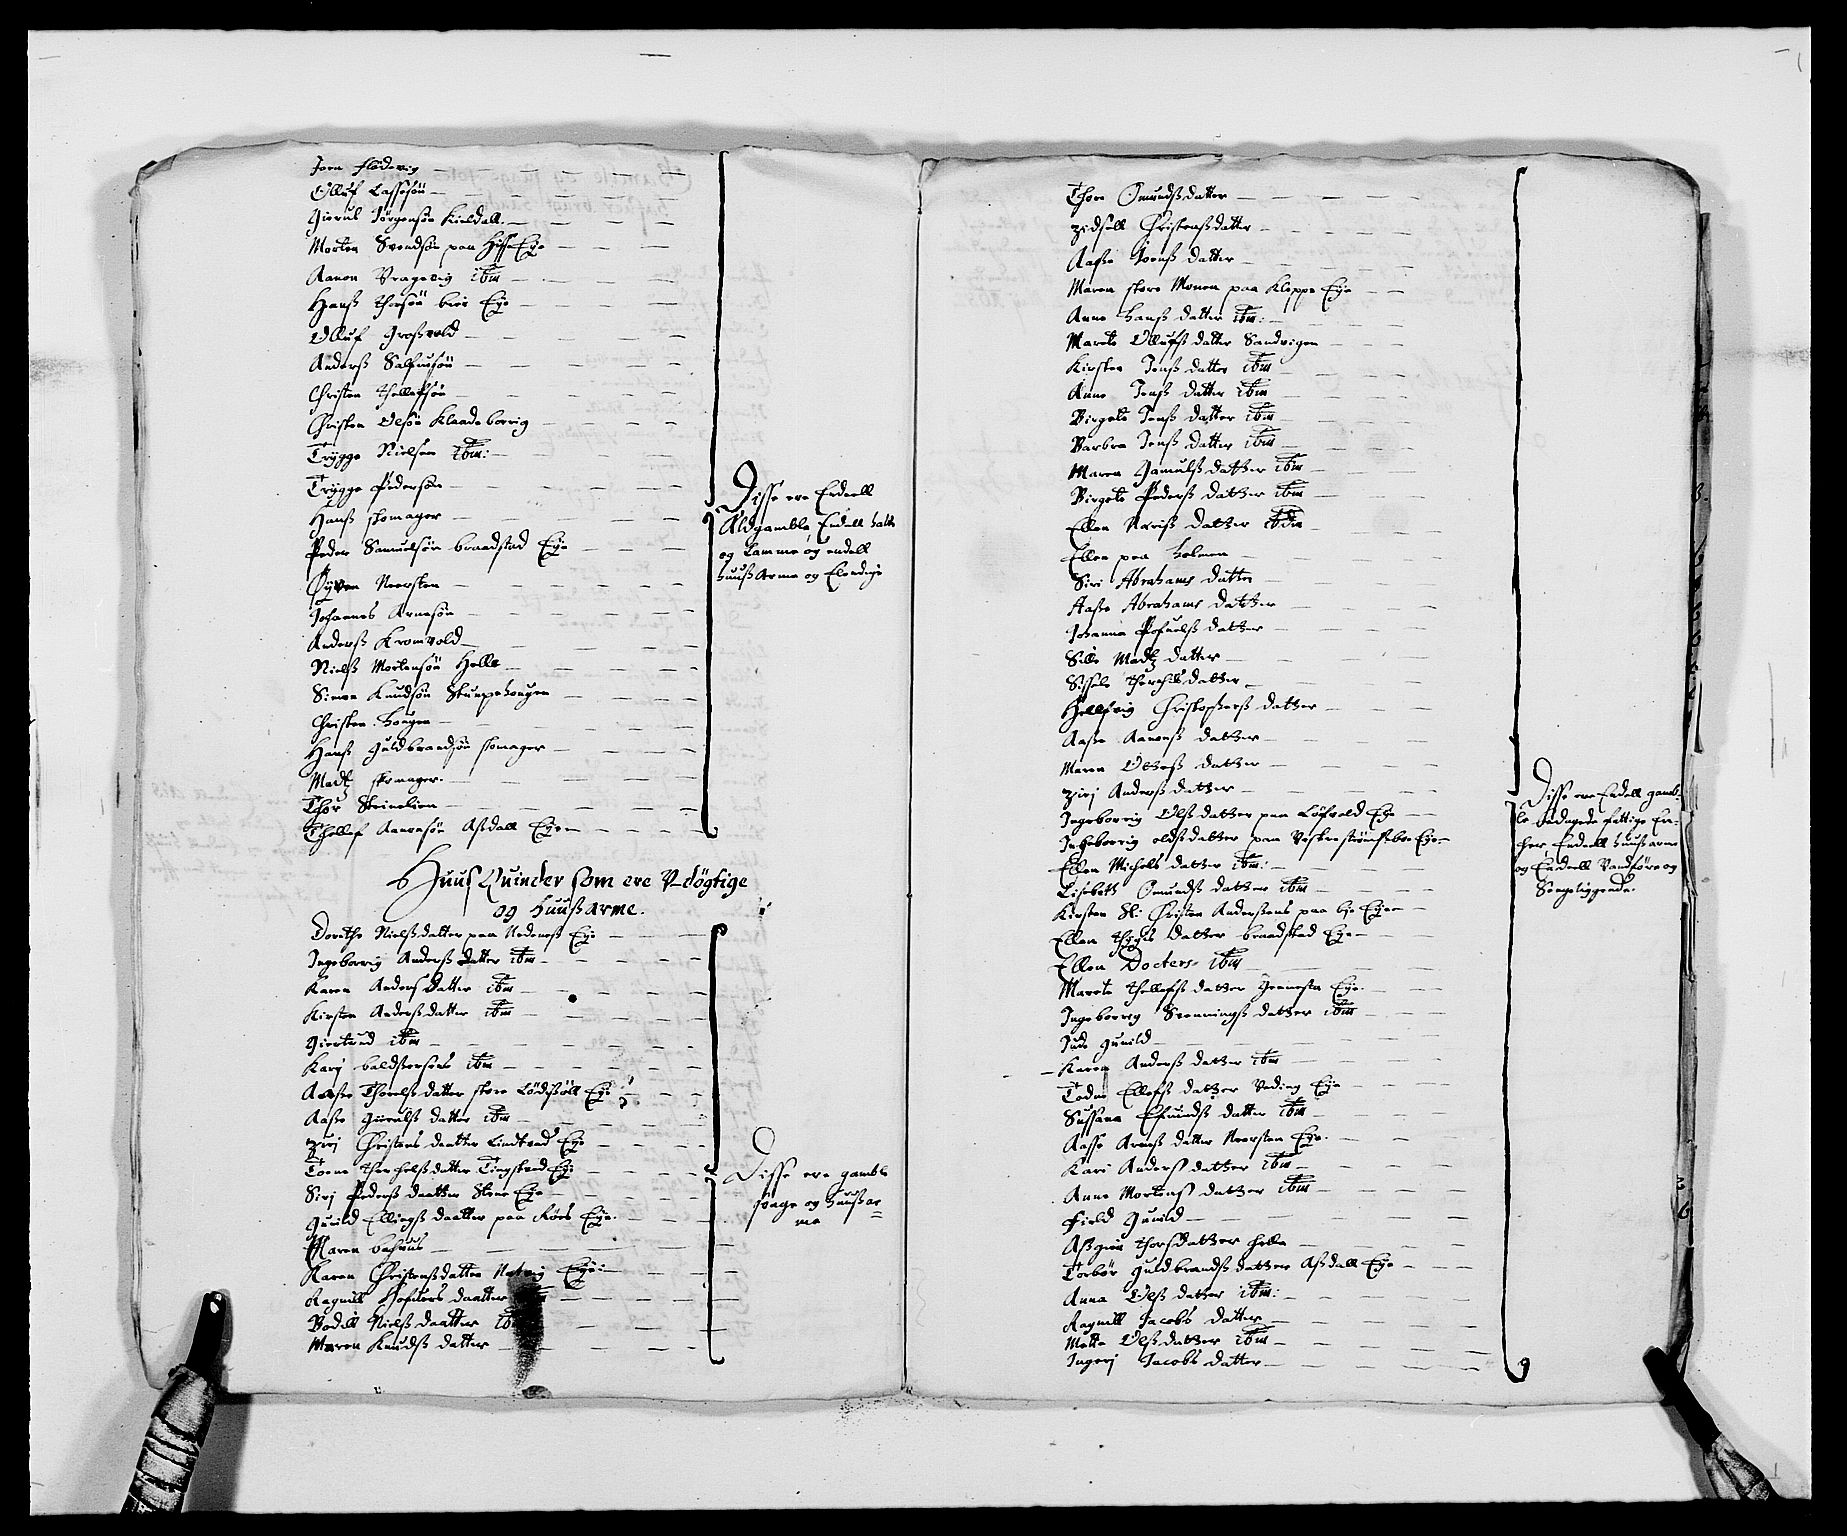 Joen flødevig
Olluf Lassesøn
Gierul Jørgensøn Kieldall
Morten Svendsøn paa Hisse Eye
Aanon Vragevig ibm
Hanß thorsøn bie Eye
Olluf Großvold
Anderß Salfuesøn
Christen thellefsøn
Christen Olsøn Klaadeborrig
Trygge Nielsen ibm:
Trygge Pedersøn
Hanß skomager
Peder Samuelsøn braadstad Eye
Øyven Neersten
Johannes Arnesøn
Anderß Kromvold
Nielß Mortensøn Helle
Simen Knudsøn Stumpehougen
Christen hougen
Hanß guldbrandsøn skomager
Madtz skomager.
Thor Steinelien
Thellef Aanensøn Aßdall Eye
Disse ere Endeell
Aldgamble Endell halte
og Lamme og endell
huuß Arme og Elendige
Huus Quinder som ere V-døgtige
og huußarme.
Dorethe Nielß datter paa Nedeneß Eye
Ingeborrig Anderß datter ibm
Karen Anders datter ibm
Kirsten Anderß datter ibm
Giertrud ibm
Karj baldtzersøns ibm
Aasse Thorelß datter store Lødisøll Eye
Aasse gierulß datter ibm
zirj Christens daatter Lindtved Eye
Tone therchelß datter Tingstved Eye
Sirj Pederß daatter Stene Eye
gunild Ellingß daatter paa Røes Eye.
Maren
Karen Christenß datter Eye
Ragnill daatter
Bodill Nielß daatter ibm
Maren Knudß datter
Disse ere gamble
suage og huußar
me
Thore Omundß datter
zidsell Christenß datter
Aasse Jenß datter
Maren store Monen paa Kleppe Eye
Anne hanß datter ibm:
Marete Ollufß datter Sandvigen
Kirsten Jenß datter ibm
Anne Jenß datter ibm
Birgete Jenß datter ibm
Barbra Jenß datter ibm
Maren gamulß datter ibm
Birgete Pederß datter ibm
Ellen datter ibdm
Ellen paa holmen
Siri Abrahams datter
Aasse Abrahams datter
Johanna Pofuelß datter
Sille Madtz datter
Sissele therchilß datter
Hellevig Christofferß datter
Aasse Aanenß datter
Maren Otteß datter
zirj Anderß datter
Ingeborrig Olß datter paa Løfvold Eye
Ingeborrig oldß datter paa Eye
Ellen Michels datter ibm:
Lisebett Omundß datter ibm
Kirsten Sl: Christen Anderßens paa bie Eye
Ellen datter braadstad Eye
Ellen Docters ibm
Marete thellefß datter Eye.
Ingeborrig Svenningß datter ibm
gunild
Karen Anderß datter ibm
Todne Ellefß datter Eye
Sussana datter ibm
Aasse Arneß datter Neersten Eye.
Kari Anderß datter ibm
Anne Mortenß datter ibm
gunild
Aßgien thorsdatter helle
Torbør guldbrandß datter Aßdall Eye
Anna Olß datter ibm:
Ragnill Jacobs datter
Mette Olß datter ibm
Ingerj Jacobs datter
Disse ere Endell gamb-
le fattige En-
cher Endeell huuß arme
og Endeell Vanføre og
Sengeliggende.